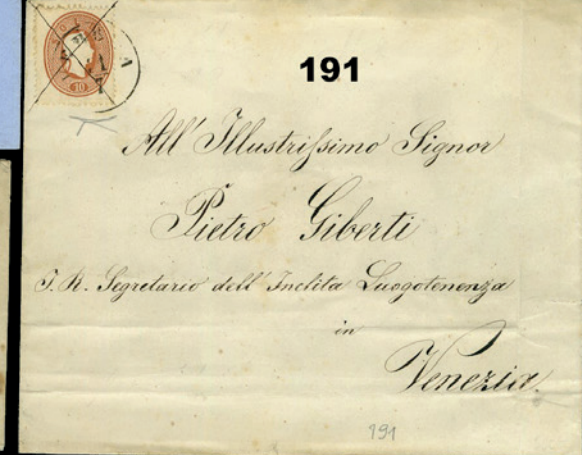 191
10
1
7
All' Illustrissimo Signor
Pietro Giberti
I. R. Segretario dell' Inclita Luogotenenza
in
Venezia.
191